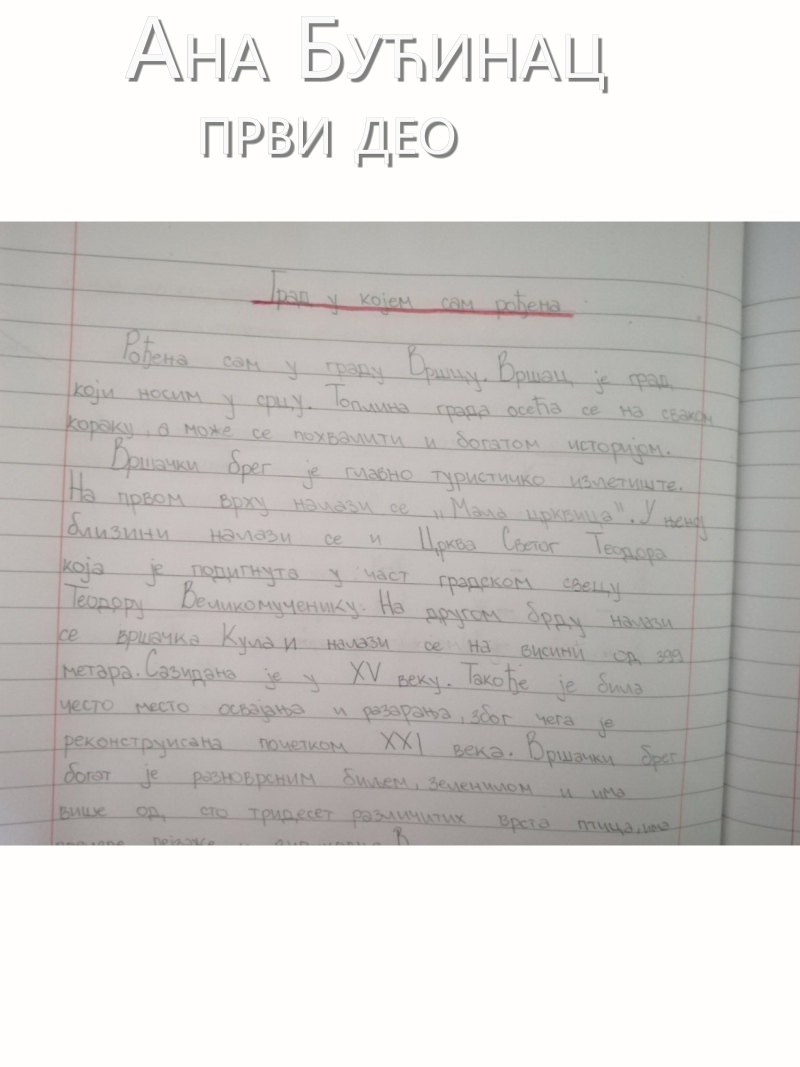 Ана Бућинац
први део
Град у којем сам рођена
Рођена сам у граду Вршцу. Вршац је град
који носим у срцу. Топлина града осећа се на сваком
кораку, а може се похвалити и богатом историјом.
Вршачки брег је главно туристичко излетиште.
На првом врху налази се „Мала црквица". У њеној
близини налази се и Црква Светог Теодора
која је подигнута у част градском свецу
Теодору Великомученику. На другом брду налази
се вршачка Кула и налази се на висини од 399
метара. Сазидана је у XV веку. Такође је била
често место освајања и разарања, због чега је
реконструисана почетком XXI века. Вршачки брег
богат је разноврсним биљем, зеленилом и има
више од сто тридесет различитих врста птица,